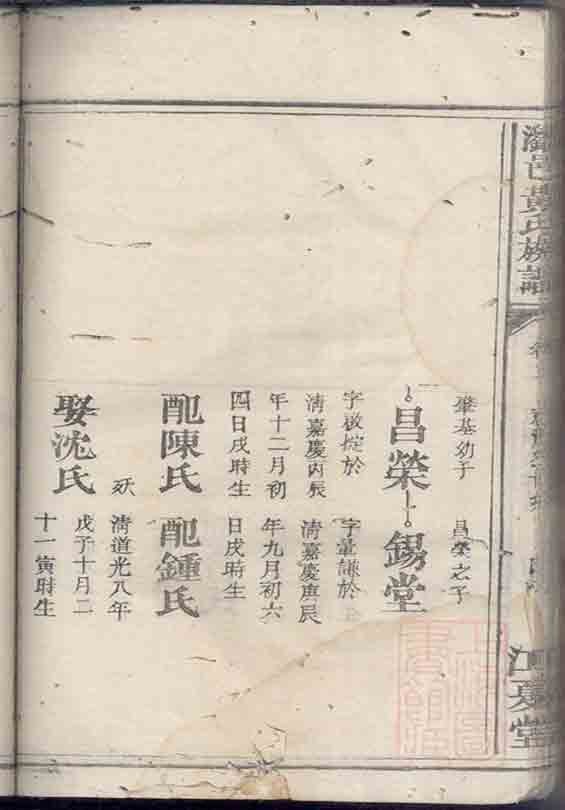 邑黃氏族譜
江夏堂
肇基幼子
昌榮
字於
清嘉慶丙辰
年十二月初
四日戌時生
配陳氏
殀
娶沈氏
昌榮之子
錫堂
字謙於
清嘉慶庚辰
年九月初六
日戌時生
配鍾氏
清道光八年
戊子十月二
十一寅時生